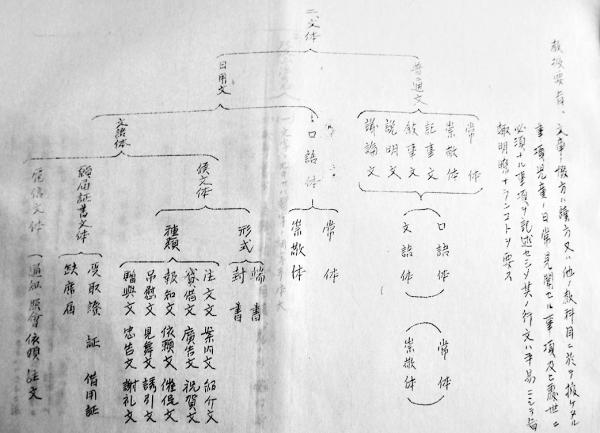 教授要旨、文章ノ綴方ハ讀方又ハ他ノ教科目ニ於テ授ケタル
事項児童ノ日常見聞セル事項及ビ處世ニ
必須ナル事項ヲ記述セシメ其ノ行文ハ平易ニシテ旨
趣明瞭ナランコトヲ要ス
二、文体
普通文
常体
崇敬体
記事文
叙事文
説明文
議論文
口語体
文語体
常体
崇敬体
日用文
口語体
常体
崇敬体
文語体
候文体
形式
端書
封書
種類
注文文 案内文 紹介文
貸借文 廣告文 祝賀文
報知文 依頼文 催促文
吊慰文 見舞文 誘引文
贈与文 忠告文 謝礼文
願届証書文体
受取證 証 借用証
缺席届
通知 照會 依頼 註文